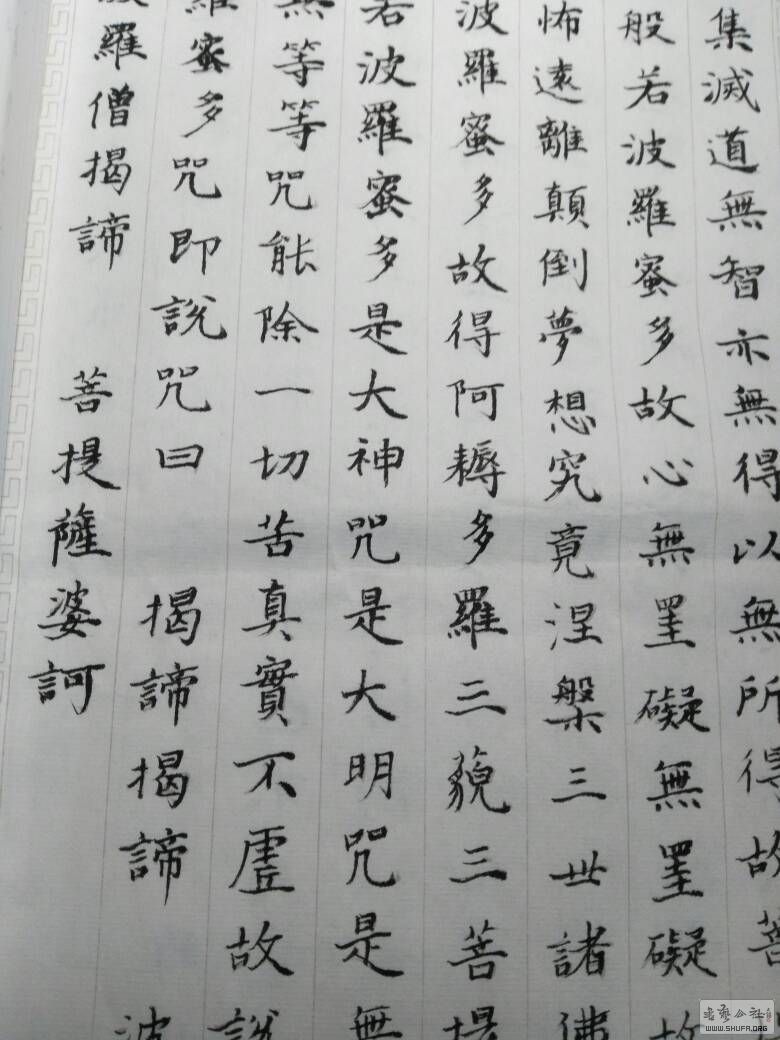 集滅道無智亦無得以無所得故菩
般若波羅蜜多故心無罣礙無罣礙故
怖遠離顛倒夢想究竟涅槃三世諸佛
波羅蜜多故得阿耨多羅三藐三菩提
若波羅蜜多是大神咒是大明咒是無
無等等咒能除一切苦真實不虛故說
羅蜜多咒即說咒曰 揭諦揭諦 波
羅僧揭諦 菩提薩婆訶
書藝公社
WWW.SHUFA.ORG